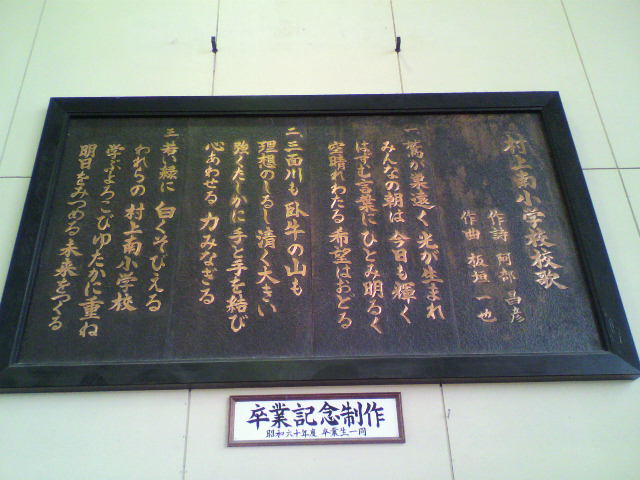 村上南小学校校歌
作詩 阿部 昌彦
作曲 板垣 一也
一 鷲が巣遠く 光が生まれ
みんなの朝は 今日も輝く
はずむ言葉に ひとみ明るく
空晴れわたる 希望はおどる
二 三面川も 臥牛の山も
理想のしるし 清く大きい
強くたしかに 手と手を結び
心あわせる 力みなぎる
三 若い緑に 白くそびえる
われらの 村上南小学校
学ぶよろこび ゆたかに重ね
明日をみつめる 未来をつくる
卒業記念制作
昭和六十年度 卒業生一同